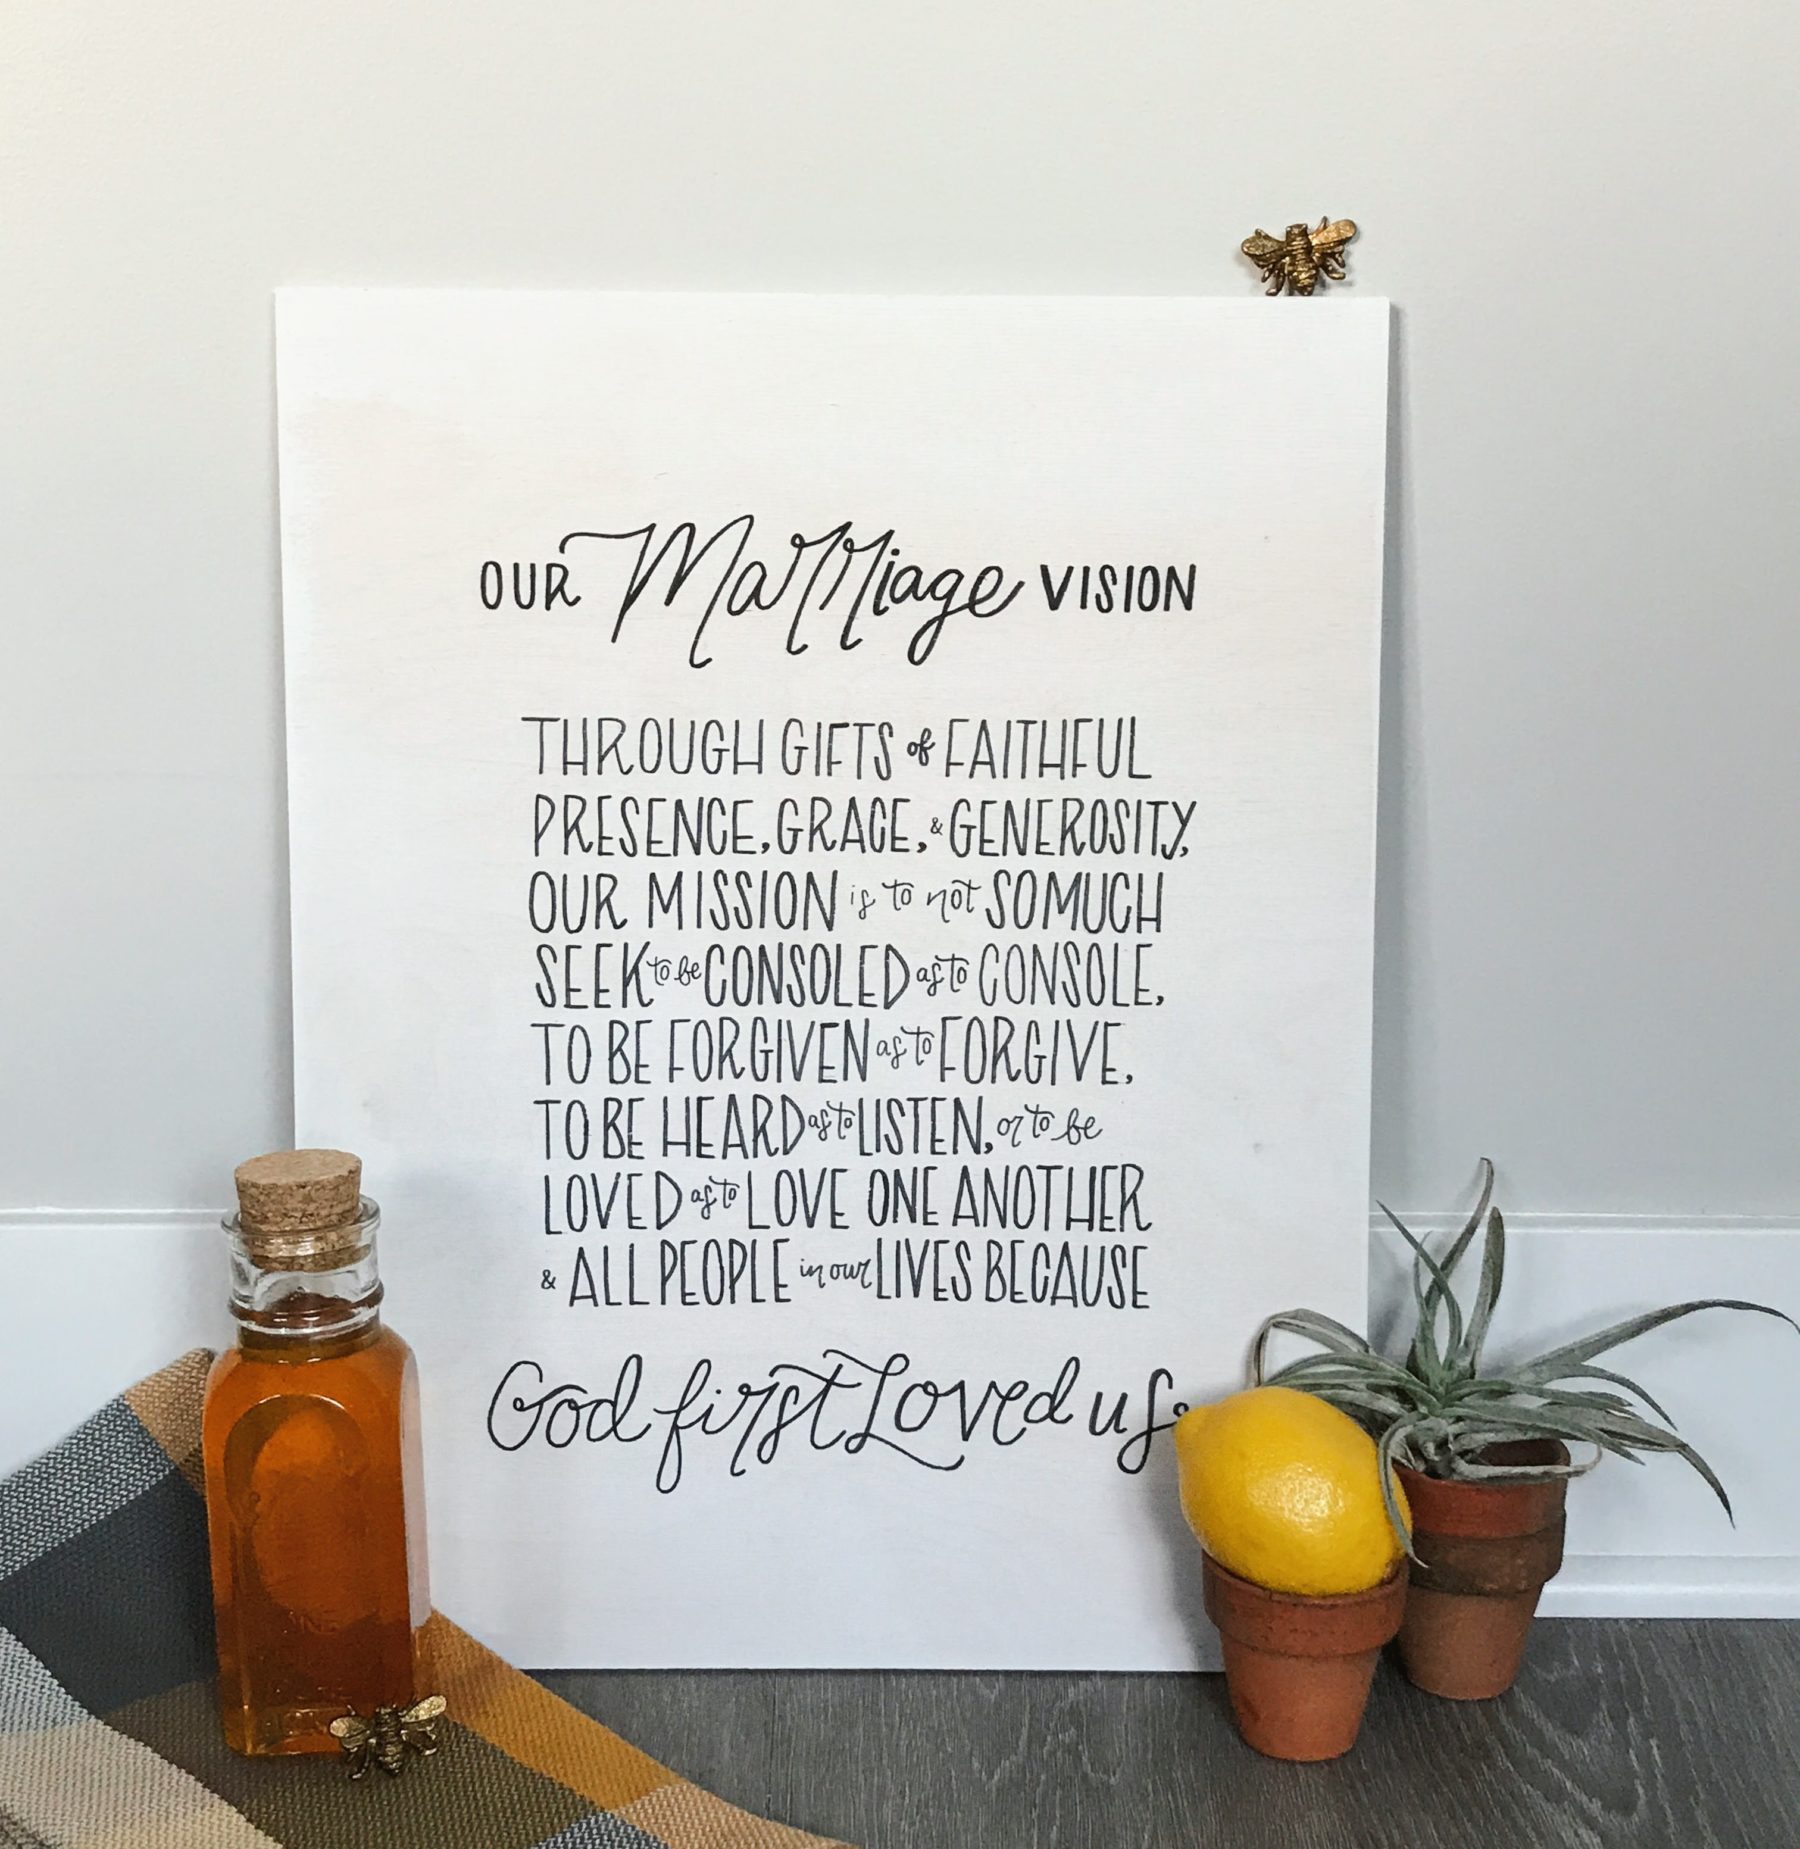 OUR Marriage VISION
THROUGH GIFTS of FAITHFUL
PRESENCE, GRACE, & GENEROSITY,
OUR MISSION is to not SO MUCH
SEEK to be CONSOLED as to CONSOLE,
TO BE FORGIVEN as to FORGIVE,
TO BE HEARD as to LISTEN, or to be
LOVED as to LOVE ONE ANOTHER
& ALL PEOPLE in our LIVES BECAUSE
God first Loved us.